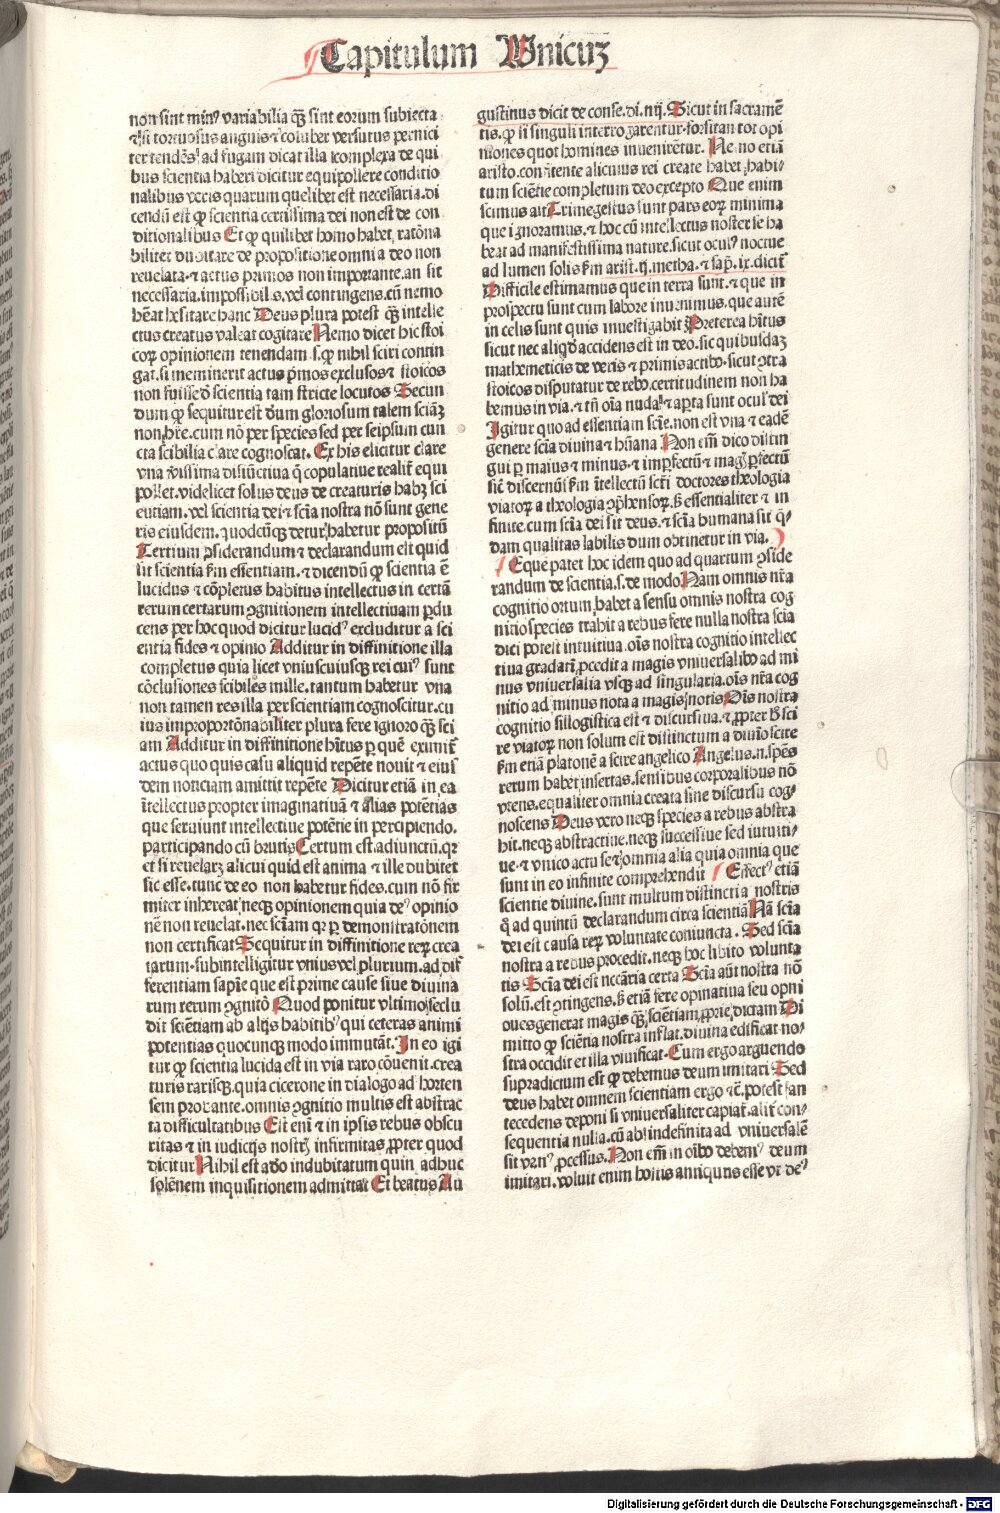 Capitulum Unicuʒ
non sint minꝰ variabilia qʒ̃ sint eorum subiecta
⁊ si tortuosus anguis ⁊ coluber versutus pernici
ter tendẽs ad fugam dicat illa complexa de qui
bus scientia haberi dicitur equipollere conditio
nalibus veris quarum quelibet est necessaria. di
cendũ est ꝙ scientia certissima dei non est de con
ditionalibus Et ꝙ quilibet homo habet, ratõna
biliter dubitare de propositione omni a deo non
reuelata. ⁊ actus primos non importante. an sit
necessaria. impossibilis. vel contingens. cũ nemo
hẽat hesitare hanc Deus plura potest qʒ̃ intelle
ctus creatus valeat cogitare Nemo dicet hic stoi
coꝝ opinionem tenendam .s. ꝙ nihil sciri contin
gat. si meminerit actus p̃mos exclusos ⁊ stoicos
non fuisse d̃ scientia tam stricte locutos Secun
dum ꝙ sequitur est dñm gloriosum talem sciãʒ
non hr̃e. cum nõ per species sed per seipsum cun
cta scibilia clare cognoscat. Ex his elicitur clare
vna verissima disiũctiua q̃ copulatiue realiť equi
pollet. videlicet solus deus de creaturis habʒ sci
entiam. vel scientia dei ⁊ sciã nostra nõ sunt gene
ris eiusdem. ⁊ quodcũqʒ detur, habetur propositũ
Tertium ꝯsiderandum ⁊ declarandum est quid
sit scientia ẽm essentiam. ⁊ dicendũ ꝙ scientia ẽ
lucidus ⁊ cõpletus habitus intellectus in certã
rerum certarum ꝯgnitionem intellectiuam ꝑdu
cens per hoc quod dicitur lucidꝰ excluditur a sci
entia fides ⁊ opinio Additur in diffinitione illa
completus quia licet vniuscuiusqʒ rei cuiꝰ sunt
cõclusiones scibiles mille. tantum habetur vna
non tamen res illa per scientiam cognoscitur. cu
ius improportõnabiliter plura fere ignoro qʒ̃ sci
am Additur in diffinitione hĩtus ꝑ quẽ exuniť
actus quo quis casu aliquid repẽte nouit ⁊ eius
dem noticiam amittit repẽte Dicitur etiã in ea
ĩtellectus propter imaginatiuã ⁊ alias potẽtias
que seruiunt intellectiue potẽtie in percipiendo.
participando cũ brutis Certum est. adiunctũ. qꝛ
et si reuelaꝛʒ alicui quid est anima ⁊ ille dubitet
sic esse. tunc de eo non habetur fides. cum nõ fir
miter inhereat. neqʒ opinionem quia deꝰ opinio
nẽ non reuelat. nec sciãm qꝛ ꝑ demonstratõnem
non certificat Sequitur in diffinitione reꝝ crea
tarum. subintelligitur vnius vel plurium. ad dif
ferentiam sapĩe que est prime cause siue diuina
rum rerum ꝯgnitõ Quod ponitur vltimo, seclu
dit sciẽtiam ab alijs habitibꝰ qui ceteras animi
potentias quocunqʒ modo immutãt. In eo igi
tur ꝙ scientia lucida est in via raro cõuenit. crea
turis rarisqʒ. quia cicerone in dialogo ad horten
sem probante. omnis ꝯgnitio multis est abstrac
ta difficultatibus Est enĩ ⁊ in ipsis rebus obscu
ritas ⁊ in iudicijs nostrĩs infirmitas, ꝓpter quod
dicitur Nihil est adeo indubitatum quin adhuc
solẽnem inquisitionem admittat Et beatus Au
gustinus dicit de conse. di. iiij. Sicut in sacramẽ
tis. ꝙ si singuli interrogarentur. forsitan tot opi
niones quot homines inuenirẽtur. Nemo etiã
aristo. contitente alicuius rei create habet, habi
tum sciẽtie completum deo excepto Que enim
scimus ait Trimegestus sunt pars eoꝝ minima
que ignoramus. ⁊ hoc cũ intellectus noster se ha
beat ad manifestissima nature. sicut oculꝰ noctue
ad lumen solis ẽm arist. ij. metha. ⁊ sap̃. ix. diciť
Difficile estimamus que in terra sunt. ⁊ que in
prospectu sunt cum labore inuenimus. que autẽ
in celis sunt quis inuestigabit Preterea hĩtus
sicut nec aliqđ accidens est in deo. sic quibusdaʒ
mathemeticis de veris ⁊ primis actibꝰ. sicut ꝯtra
stoicos disputatur de rebꝰ. certitudinem non ha
bemus in via. ⁊ tñ oĩa nuda ⁊ aꝑta sunt oculꝭ dei
Igitur quo ad essentiam sciẽ. non est vna ⁊ eadẽ
genere sciã diuina ⁊ hũana Non em̃ dico distin
gui ꝑ maius ⁊ minus. ⁊ imꝑfectũ ⁊ magꝭ ꝑfectũ
sic̃ discernũt ẽm ĩtellectũ scti doctores theologia
viatoꝝ a theologia ꝯp̃hensoꝝ. sꝫ essentialiter ⁊ in
finite. cum sciã dei sit deus. ⁊ sciã humana sit q̃
dam qualitas labilis dum obtinetur in via.
Eque patet hoc idem quo ad quartum ꝯside
randum de scientia. s. de modo Nam omnis nr̃a
cognitio ortum, habet a sensu omnis nostra cog
nitio species trahit a rebus fere nulla nostra scia
dici potest intuitiua. oĩs nostra cognitio intellec
tiua gradatĩ, ꝓcedit a magis vniversalibꝰ ad mi
nus vniuersalia vsqʒ ad singularia. oĩs nr̃a cog
nitio ad minus nota a magis notis. Oĩs nostra
cognitio sillogistica est ⁊ discursiua. ⁊ ꝓpter B̃ sci
re viatoꝝ non solum est distinctum a diuino scire
ẽm etiã platonẽ a scire angelico Angelus .n. spẽs
rerum habet insertas. sensibus corporalibus nõ
vtens. equaliter omnia creata sine discursu cog
noscens Deus vero neqʒ species a rebus abstra
hit. neqʒ abstractiue. neqʒ successiue sed intuiti
ue. ⁊ vnico actu se ⁊ omnia alia quia omnia que
sunt in eo infinite comprehendit Effectꝰ etiã
scientie diuine. sunt multum distincti a nostris
q̃ ad quintũ declarandum circa scientiã Nã scia
dei est causa reꝝ voluntate coniuncta. Sed sciã
nostra a rebus procedit. neqʒ hoc libito volunta
tis Sciã dei est nccãria certa Sciã aũt nostra nõ
solũ. est ꝯtingens. sꝫ etiã fere opinatiua seu opni
oues generat magis qʒ̃, sciẽtiam, ꝓprie, dictam Di
mitto ꝙ sciẽtia nostra inflat. diuina edificat no
stra occidit et illa viuificat. Cum ergo arguendo
supradictum est ꝙ debemus deum imitari Sed
deus habet omnem scientiam ergo ⁊c̃. potest an
tecedens deponi si vniuersaliter capiať. aliť con
sequentia nulla. cũ ab indefinita ad vniuersalẽ
sit vanꝰ, ꝓcessus. Non em̃ in oĩbꝰ debemꝰ deum
imitari. voluit enim hostis antiquus esse vt deꝰ
Digitalisierung gefördert durch die Deutsche Forschungsgemeinschaft - DFG